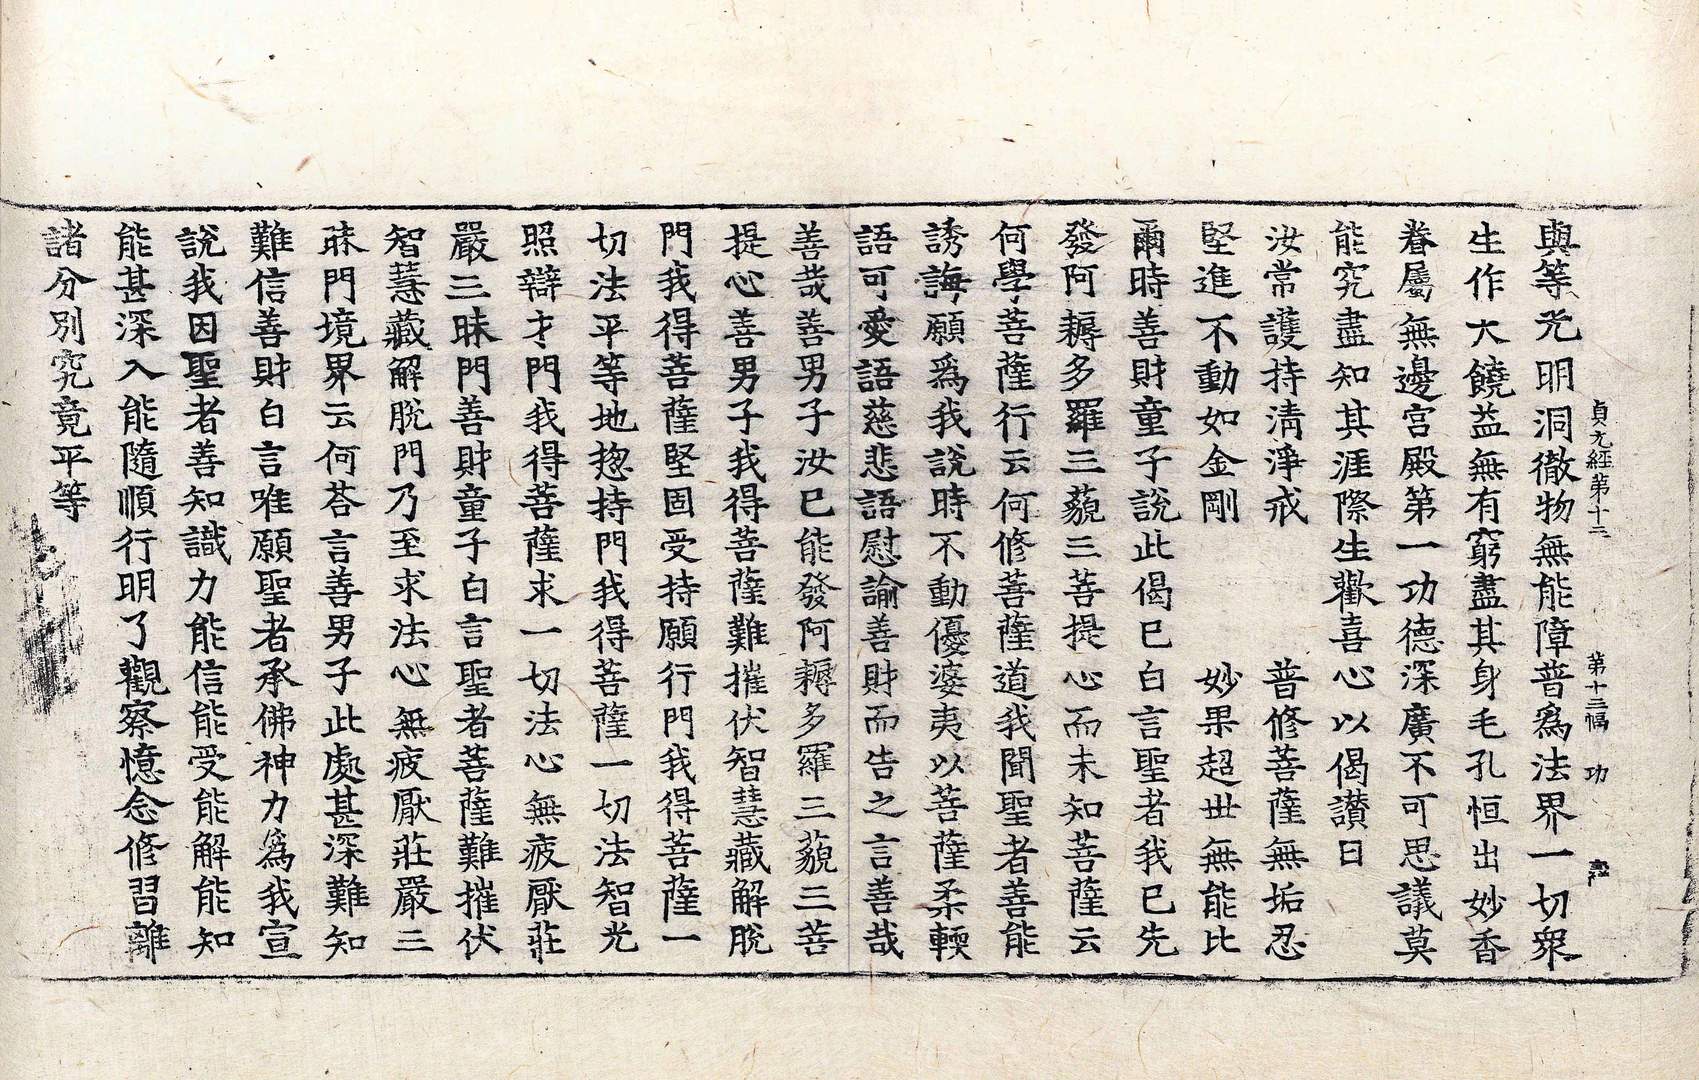 貞元經第十三　第十三幅　功
與等光明洞徹物無能障普爲法界一切衆
生作大饒益無有窮盡其身毛孔恒出妙香
眷屬無邊宮殿第一功德深廣不可思議莫
能究盡知其涯際生歡喜心以偈讃曰
汝常護持清淨戒　普修菩薩無垢忍
堅進不動如金剛　妙果超世無能比
爾時善財童子說此偈已白言聖者我已先
發阿耨多羅三藐三菩提心而未知菩薩云
何學菩薩行云何修菩薩道我聞聖者善能
誘誨願爲我說時不動優婆夷以菩薩柔輭
語可愛語慈悲語慰諭善財而告之言善哉
善哉善男子汝已能發阿耨多羅三藐三菩
提心善男子我得菩薩難摧伏智慧藏解脫
門我得菩薩堅固受持願行門我得菩薩一
切法平等地揔持門我得菩薩一切法智光
照辯才門我得菩薩求一切法心無疲厭莊
嚴三昧門善財童子白言聖者菩薩難摧伏
智慧藏解脫門乃至求法心無疲厭莊嚴三
昧門境界云何荅言善男子此處甚深難知
難信善財白言唯願聖者承佛神力爲我宣
說我因聖者善知識力能信能受能解能知
能甚深入能隨順行明了觀察憶念修習離
諸分別究竟平等